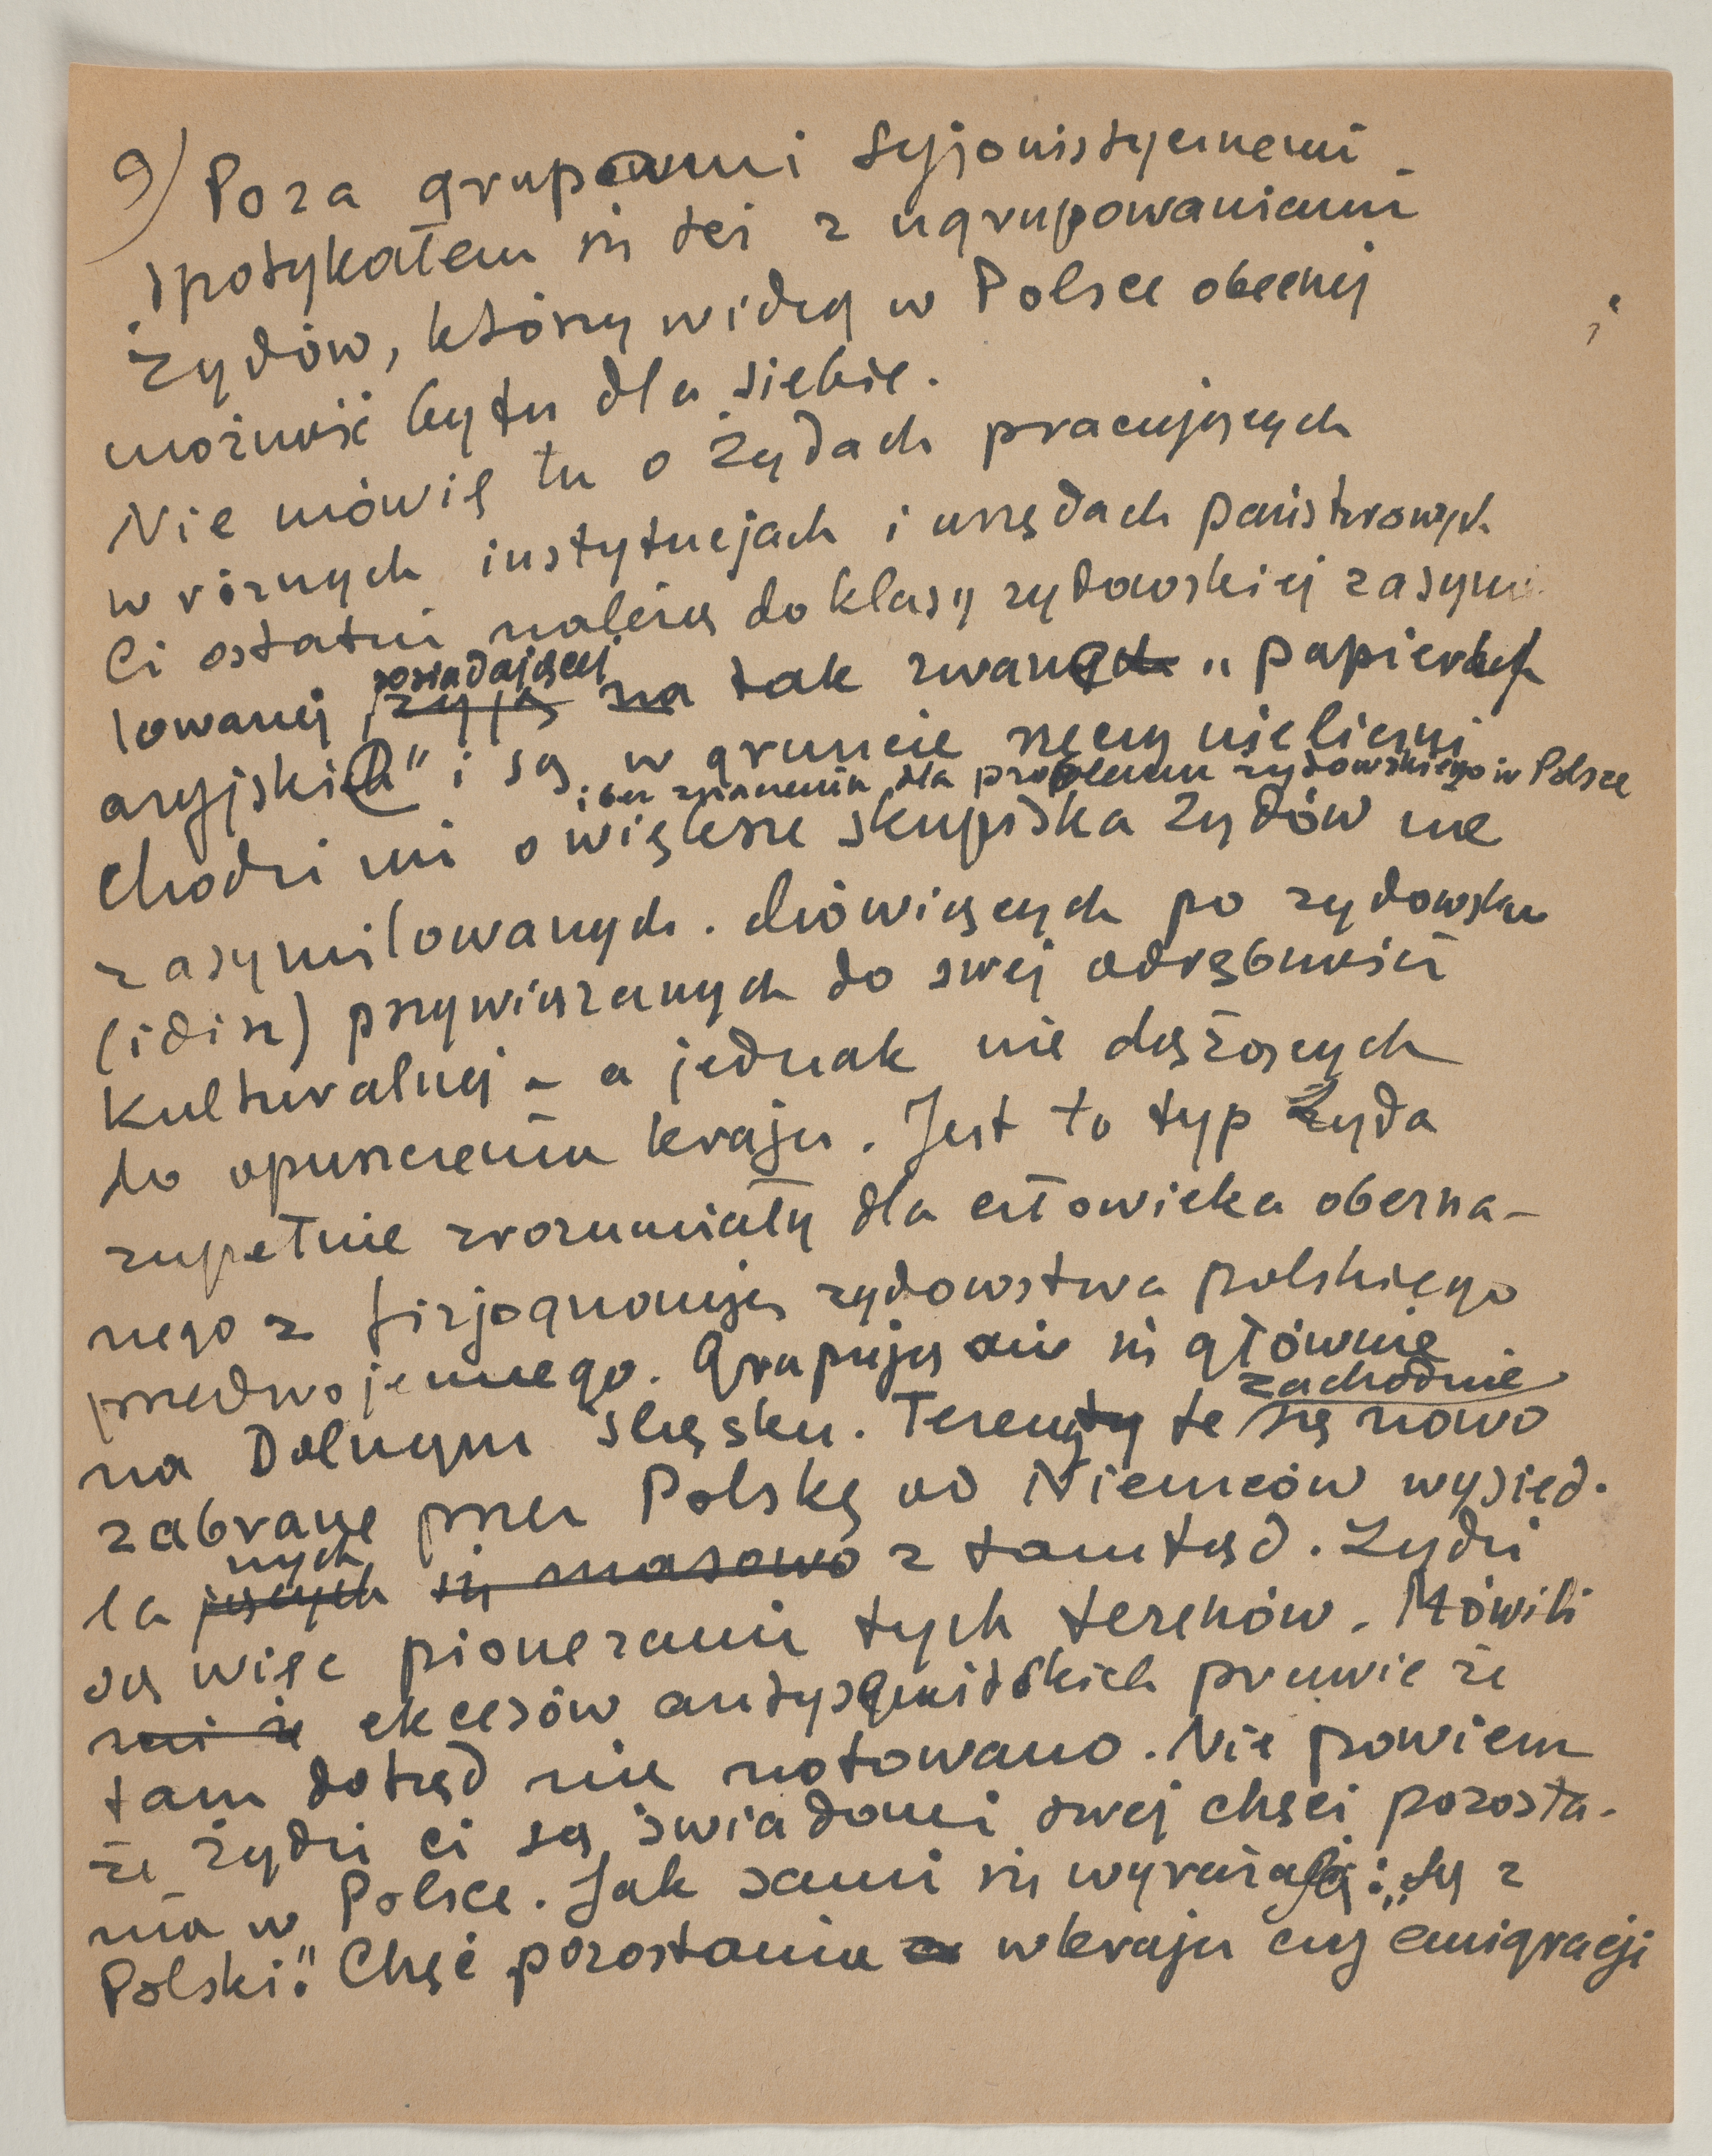 9) Poza grupami syjonistycznemi
spotykałem się też z ugrupowaniami
Żydów, którzy widzą w Polsce obecnej
możność bytu dla siebie.
Nie mówię tu o Żydach pracujących
w różnych instytucjach i urzędach państwowych
Ci ostatni należą do klasy żydowskiej zasymi
posiadającej
lowanej żyją na tak zwanych „papierach
aryjskich" i są w gruncie rzeczy nieliczni
i bez znaczenia dla problemu żydowskiego w Polsce
Chodzi mi o większe skupiska Żydów nie
zasymilowanych. Mówiących po żydowsku
(idisz) przywiązanych do swej odrębności
kulturalnej – a jednak nie dążących
do opuszczenia kraju. Jest to typ Żyda
zupełnie zrozumiały dla człowieka obezna-
nego z fizjognomją żydowstwa polskiego
przedwojennego. Grupują oni się głównie
zachodnie
na Dolnym Śląsku. Tereny te są nowo
zabrane przez Polskę od Niemców wysied-
nych
la jących się masowo z tamtąd. Żydzi
są więc pionerami tych terenów. Mówili
mi że ekcesów antysemidskich prawie że
tam dotąd nie notowano. Nie powiem
że żydzi ci są świadomi swej chęci pozosta-
nia w Polsce. Jak sami się wyrażają: „są z
Polski." Chęć pozostania w kraju czy emigracji